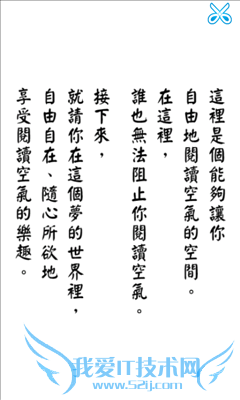 這裡是個能夠讓你
自由地閱讀空氣的空間。
在這裡，
誰也無法阻止你閱讀空氣。
接下來，
就請你在這個夢的世界裡，
自由自在、隨心所欲地
享受閱讀空氣的樂趣。
我爱IT技术网
www.52ij.com